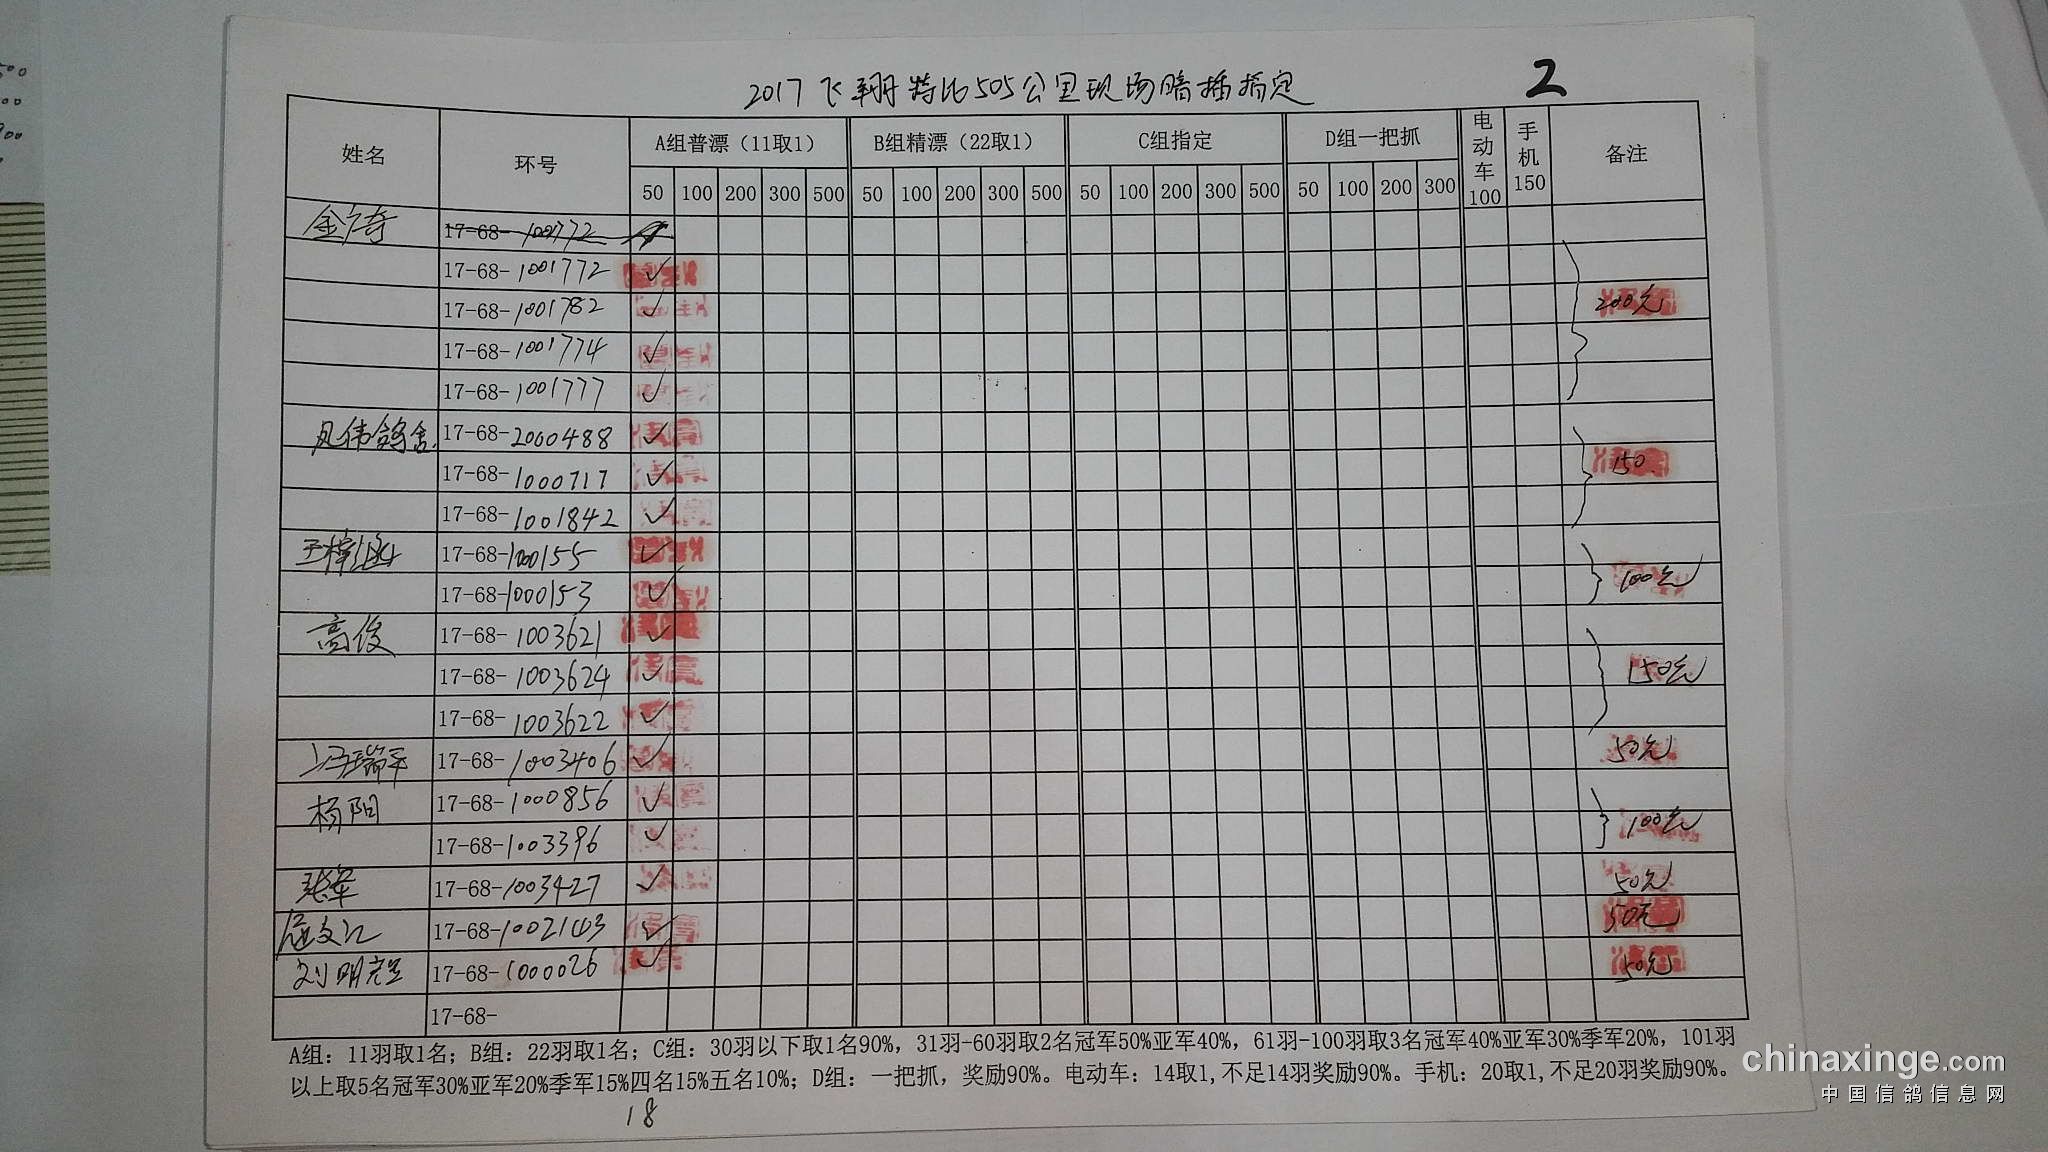 2017飞翔特比505公里现场暗插指定 2
姓名 环号 A组普漂（11取1） B组精漂（22取1） C组指定 D组一把抓 电动车100 手机150 备注
50 100 200 300 500 50 100 200 300 500 50 100 200 300 500 50 100 200 300
17-68-1001772
17-68-1001772 ✓
17-68-1001782 ✓ 200元
17-68-1001774 ✓
17-68-1001777 ✓
凤伟鸽舍 17-68-2000488 ✓
17-68-1000717 ✓ 150
17-68-1001842 ✓
17-68-1000155 ✓
17-68-1000153 ✓ 100元
高俊 17-68-1003621 ✓
17-68-1003624 ✓ 150元
17-68-1003622 ✓
冯瑞平 17-68-1003406 ✓ 50元
杨阳 17-68-1000856 ✓
17-68-1003396 ✓ 100元
张军 17-68-1003427 ✓ 50元
17-68-1002143 ✓ 50元
刘明 17-68-1000026 ✓ 50元
17-68-
A组：11羽取1名；B组：22羽取1名；C组：30羽以下取1名90%，31羽-60羽取2名冠军50%亚军40%，61羽-100羽取3名冠军40%亚军30%季军20%，101羽
以上取5名冠军30%亚军20%季军15%四名15%五名10%；D组：一把抓，奖励90%。电动车：14取1,不足14羽奖励90%。手机：20取1,不足20羽奖励90%。
18
chinaxinge.com
中国信鸽信息网